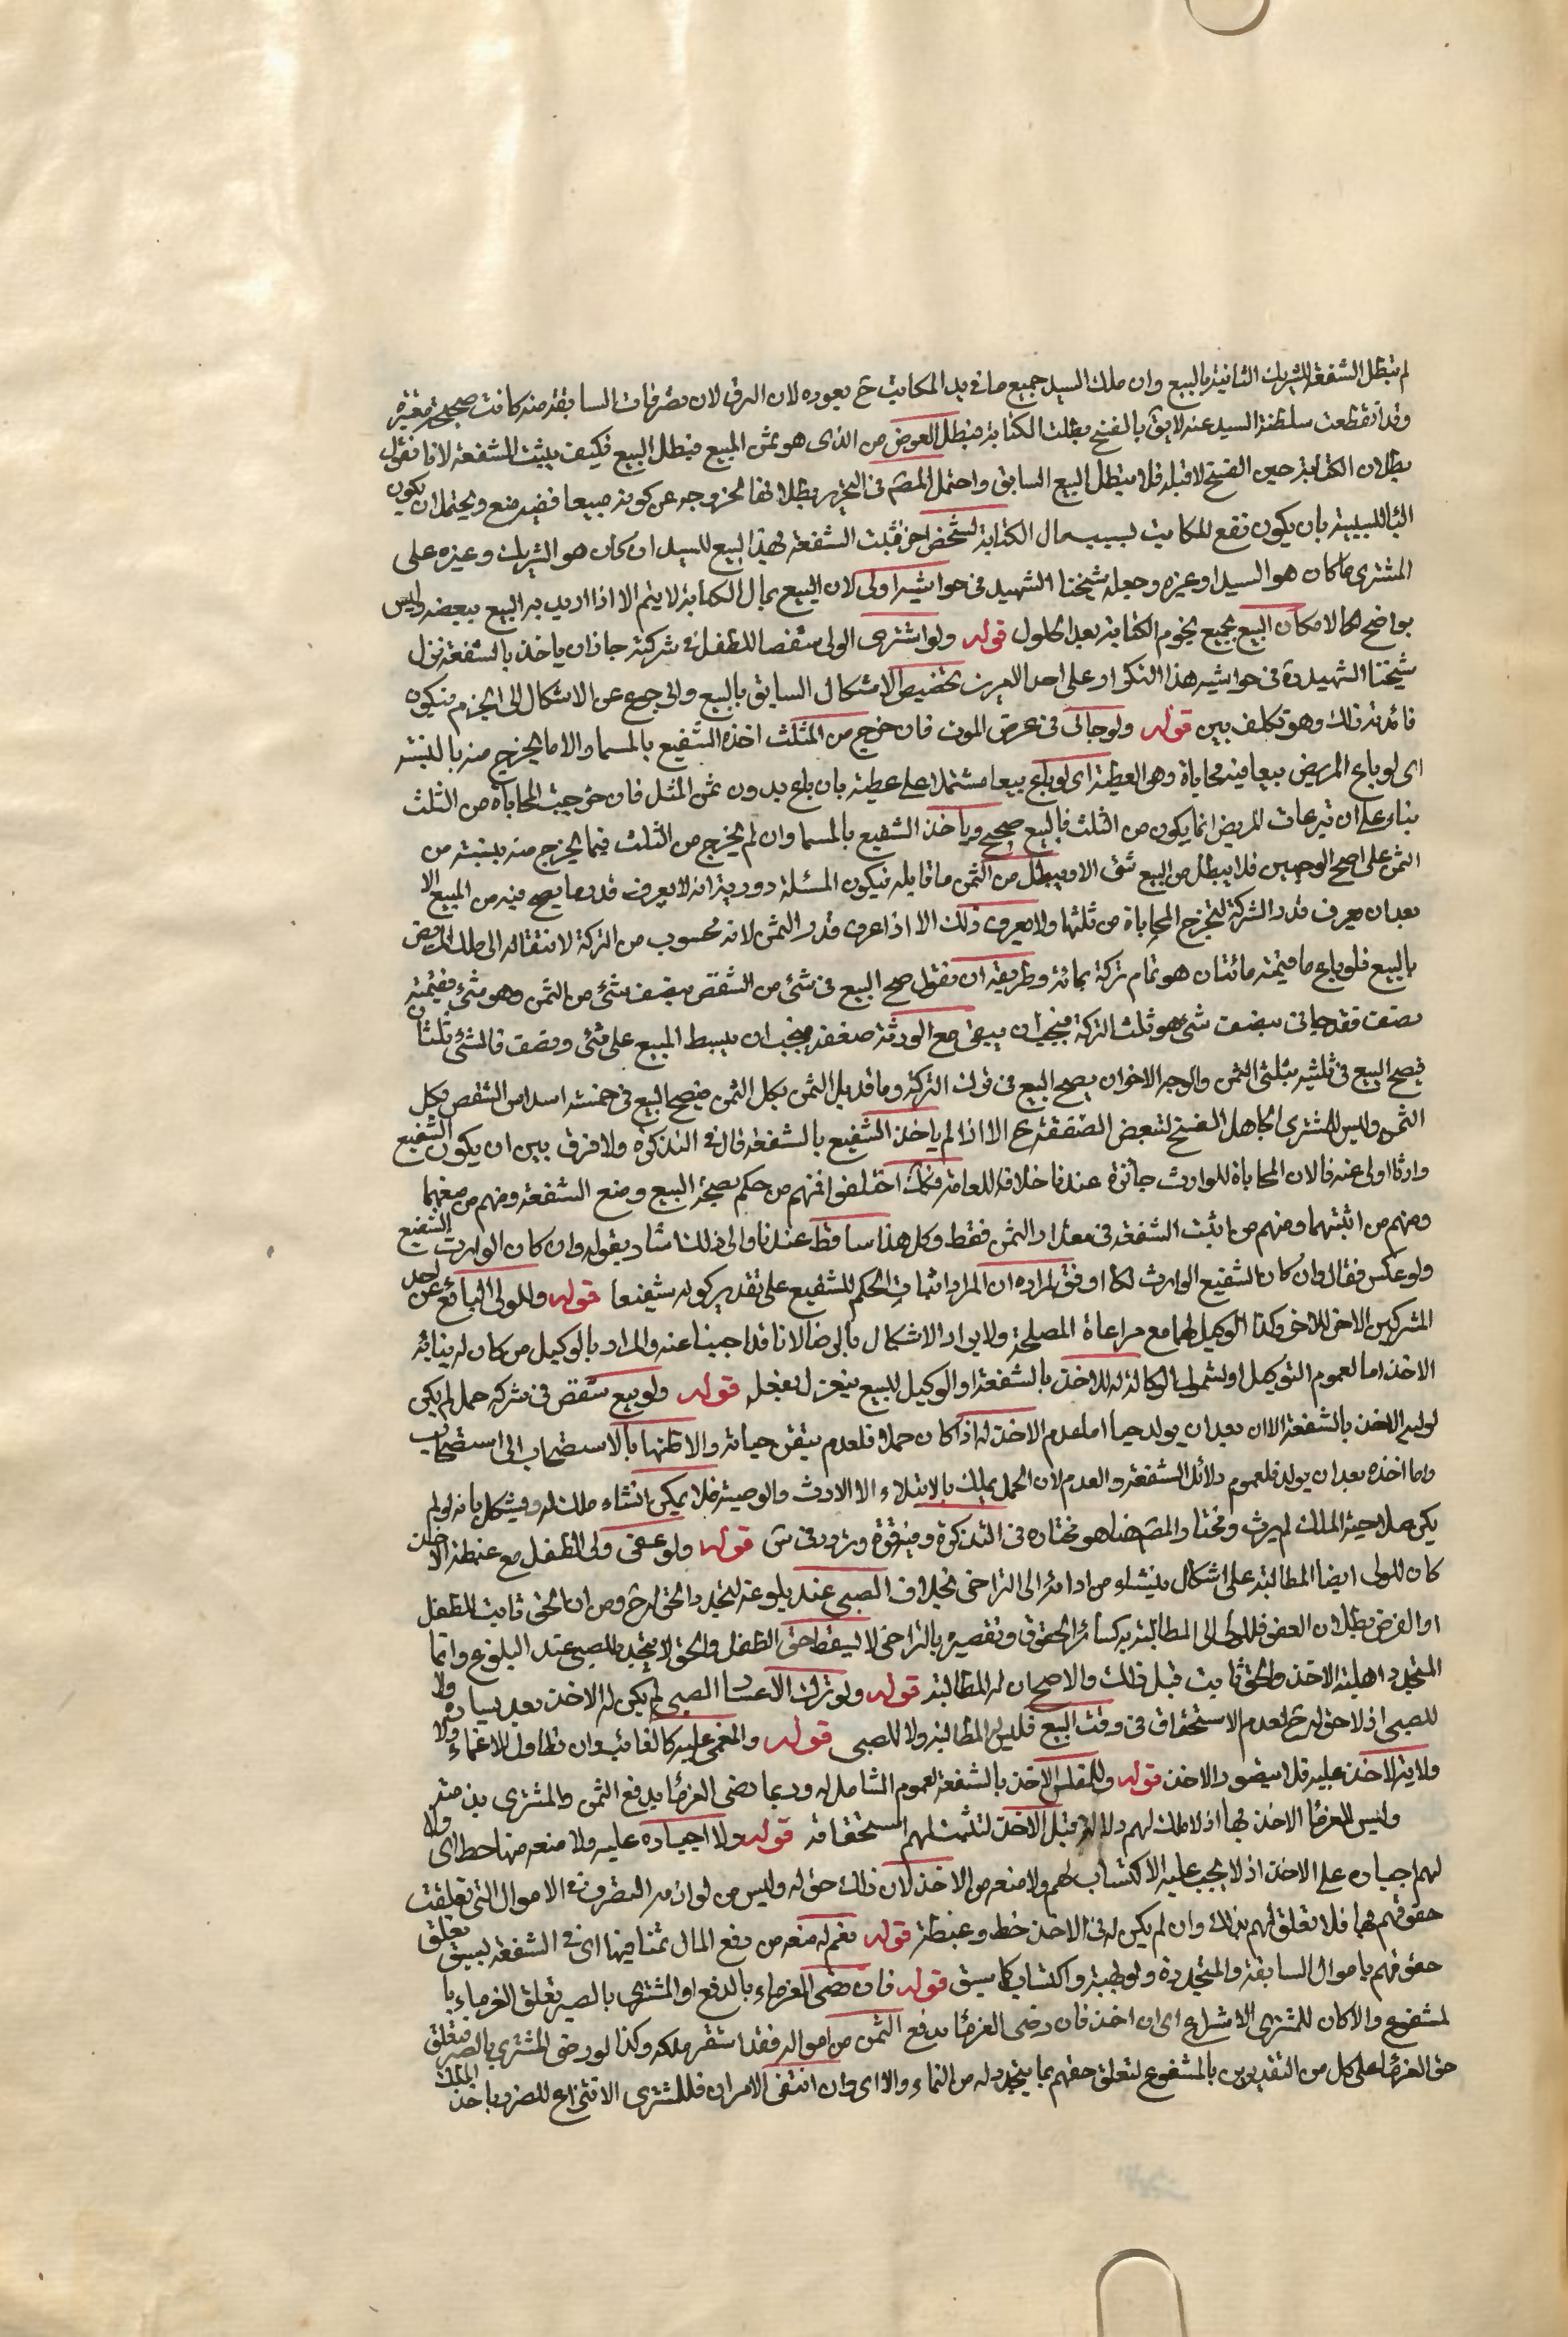 لم تبطل الشفعة للشريك الثانية بالبيع وان ملك السيد جميع ما في يد المكاتب ح بعوده لان الرق لان تصرفات السابقة منه كانت صحيحة معتبرة
وقد انقطعت سلطنة السيد عنه لا يق بالفسخ بطلت الكتابة فبطل العوض من الذى هو ثمن المبيع فبطل البيع فكيف يثبت الشفعة لانا نقول
بطلان الكتابة حين الفسخ لا قبله فلا يبطل البيع السابق واحتمل المصم في التحرير بطلانها لخروجه عن كونه مبيعا ففيه منع ويحتمل ان يكون
البا للسببية بان يكون نفع للمكاتب لسبب مال الكتابة لشخص اخر فثبت الشفعة بهذا البيع للسيد ان كان هو الشريك وغيره على
المشترى ما كان هو السيد او غيره وجعله شيخنا الشهيد في حواشيه اولى لان البيع بمال الكتابة لا يتم الا اذا اريد به البيع ببعضه وليس
بواضح لا لامكان البيع بجميع نجوم الكتابة بعد الحلول قوله ولو اشترى الولى شقصا للطفل في شركته جاز ان ياخذ بالشفعة نزل
شيخنا الشهيد ره في حواشيه هذا التكرار على احد الامرين تخصيص الاشكال السابق بالبيع والرجوع عن الاشكال الى الجزم فيكون
فائدته ذلك وهو تكلف بين قوله ولو حابى في مرض الموت فان خرج من الثلث اخذه الشفيع بالمسما والا ما يخرج منه بالنسبة
اى لو باع المريض بيعا فيه محاباة وهو العطية اى لو باع بيعا مشتملا على عطية بان باع بدون ثمن المثل فان خرجت المحاباة من الثلث
بناء على ان تبرعات المريض انما يكون من الثلث فالبيع صحيح وياخذ الشفيع بالمسما وان لم يخرج من الثلث فيما يخرج منه بنسبته من
الثمن على اصح الوجهين فلا يبطل من البيع شئ الا ويبطل من الثمن ما قابله فيكون المسئلة دورية لانه لا يعرف قدر ما يصح فيه من المبيع الا
بعد ان يعرف قدر التركة لتخرج المحاباة من ثلثها ولا يعرف ذلك الا اذا عرف قدر الثمن لانه محسوب من التركة لانتقاله الى ملك المريض
بالبيع فلو باع ما قيمته مائتان هو تمام تركته بمائة وطريقه ان نقول صح البيع في شئ من الشقص بنصف شئ من الثمن وهو شئ قيمته
نصف فقد حابى بنصف شئ هو ثلث التركة فيجب ان يبقى مع الورثة ضعفه فيجب ان يبسط المبيع على شئ ونصف فالشئ ثلثان
فيصح البيع في ثلثيه بثلثى الثمن والوجه الاخر ان يصح البيع في ثلث التركة وما قابل الثمن بكل الثمن فيصح البيع في خمسة اسداس الشقص بكل
الثمن وليس للمشترى الجاهل الفسخ لتبعض الصفقة ح الا اذا لم ياخذ الشفيع بالشفعة قال في التذكرة ولا فرق بين ان يكون الشفيع
وارثا او لى عنه فالان المحاباة للوارث جائزة عندنا خلافا للعامة فانك اختلفوا فمنهم من حكم بصحة البيع ومنع الشفعة ومنهم من منعهما
ومنهم من اثبتهما ومنهم من اثبت الشفعة في مقدار الثمن فقط وكل هذا ساقط عندنا والى ذلك اشار بقوله وان كان الوارث الشفيع
ولو عكس فقال وان كان الشفيع الوارث لكا اوفق لمراده ان المراد اثبات الحكم للشفيع على تقدير كونه شفيعا قوله وللولى البايع عن احد
المشركين الاخذ للاخر وكذا الوكيل لهما مع مراعاة المصلحة ولا يراد الاشكال بالرضا لانا قد اجبنا عنه والمراد بالوكيل من كان له نيابة
الاخذ اما لعموم التوكيل او لشمول الوكالة له للاخذ بالشفعة او الوكيل للبيع ينعزل بفعله قوله ولو بيع شقص في شركة حمل لم يكن
لوليه الاخذ بالشفعة الا ان بعد ان يولد حيا اما عدم الاخذ له اذا كان حملا فلعدم تيقن حياته والا ظنها بالاستصحاب الى استصحاب
واما اخذه بعد ان يولد فلعموم دلائل الشفعة والعدم لان الحمل يملك بالابتداء الا الارث والوصية فلا يمكن انشاء ملك له ويشكل بانه لو لم
يكن صلاحية الملك لم يرث ومختار المصم هنا هو مختاره في التذكرة وفيه قوة وتردد في س قوله ولو عفى ولى الطفل مع غبطة الاخذ
كان للولى ايضا المطالبة على اشكال ينشاء من ادائه الى التراخى بخلاف الصبى عند بلوغه لتجدد الحق له ح ومن ان الحق ثابت للطفل
او الفرض بطلان العفو فللولى المطالبة به كسائر الحقوق وتقصيره بالتراخى لا يسقط حق الطفل والحق لا يتجدد للصبى عند البلوغ وانما
المتجدد اهلية الاخذ والحق ثابت قبل ذلك والاصح ان له المطالبة قوله ولو ترك لاعسار الصبى لم يكن له الاخذ بعد يساره ولا
للصبى اذ لا حق له ح لعدم الاستحقاق في وقت البيع فليس له المطالبة ولا للصبى قوله والمغمى عليه كالغائب وان تطاول الاغماء ولا
ولاية لاحد عليه فلا يتصور الاخذ قوله وللمفلس الاخذ بالشفعة لعموم الشامل له وربما رضى الغرما بدفع الثمن والمشترى بذمته
وليس للغرما الاخذ بها اذ لا ملك لهم قبل الاخذ لتثبت لهم استحقاقه قوله ولا اجباره عليه ولا منعه منها حط اى ولا
لهم اجباره على الاخذ اذ لا يجب عليه الاكتساب لهم ولا منعه من الاخذ لان ذلك حق له وليس من لوازمه التصرف في الاموال التى تعلقت
حقوقهم بها فلا تعلق لهم بذلك وان لم يكن له في الاخذ حظ وغبطة قوله نعم له منعه من دفع المال ثمنا فيها اى في الشفعة لسبق تعلق
حقوقهم باموال السابقة والمتجددة ولو بهبة واكتساب كما سبق قوله فان رضى الغرماء بالدفع او المشترى بالصبر تعلق الغرماء با
لمشفوع والا كان للمشترى الانتزاع اى ان اخذ فان رضى الغرما بدفع الثمن من امواله فقد استقر ملكه وكذا لو رضى المشترى بالصبر فتعلق
حق الغرما على كل من التقديرين بالمشفوع لتعلق حقهم بما يتجدد له من النماء والا اى وان انتفى الامران فللمشترى الانتزاع للضرر باخذ الملك